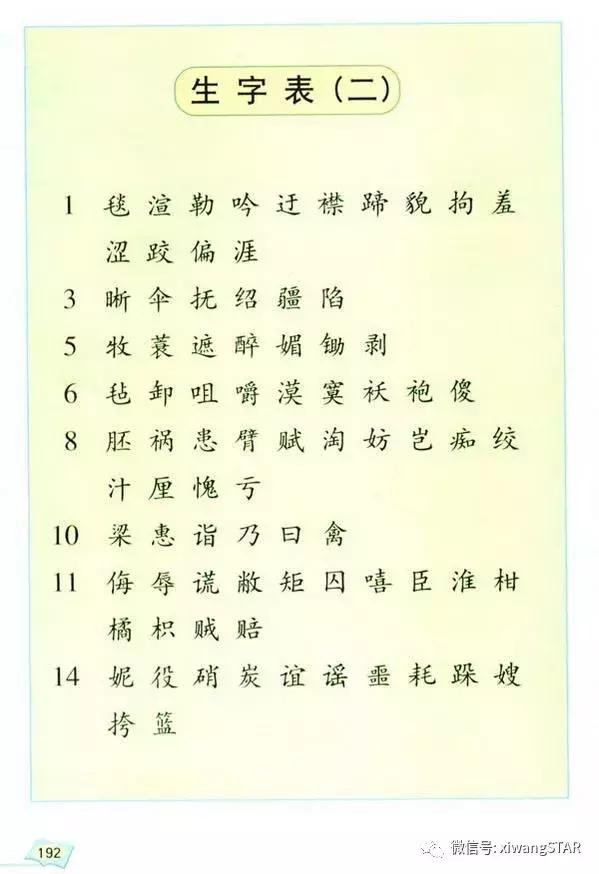 生字表(二)
1 毯 渲 勒 吟 迂 襟 蹄 貌 拘 羞
涩 跤 偏 涯
3 晰 伞 抚 绍 疆 陷
5 牧 蓑 遮 醉 媚 锄 剥
6 毡 卸 咀 嚼 漠 寞 袄 袍 傻
8 胚 祸 患 臂 赋 淘 妨 岂 痴 绞
汁 厘 愧 亏
10 梁 惠 诣 乃 曰 禽
11 侮 辱 谎 敝 矩 囚 嘻 臣 淮 柑
橘 枳 贼 赔
14 妮 役 硝 炭 谊 谣 噩 耗 跺 嫂
挎 篮
192
微信号: xiwangSTAR